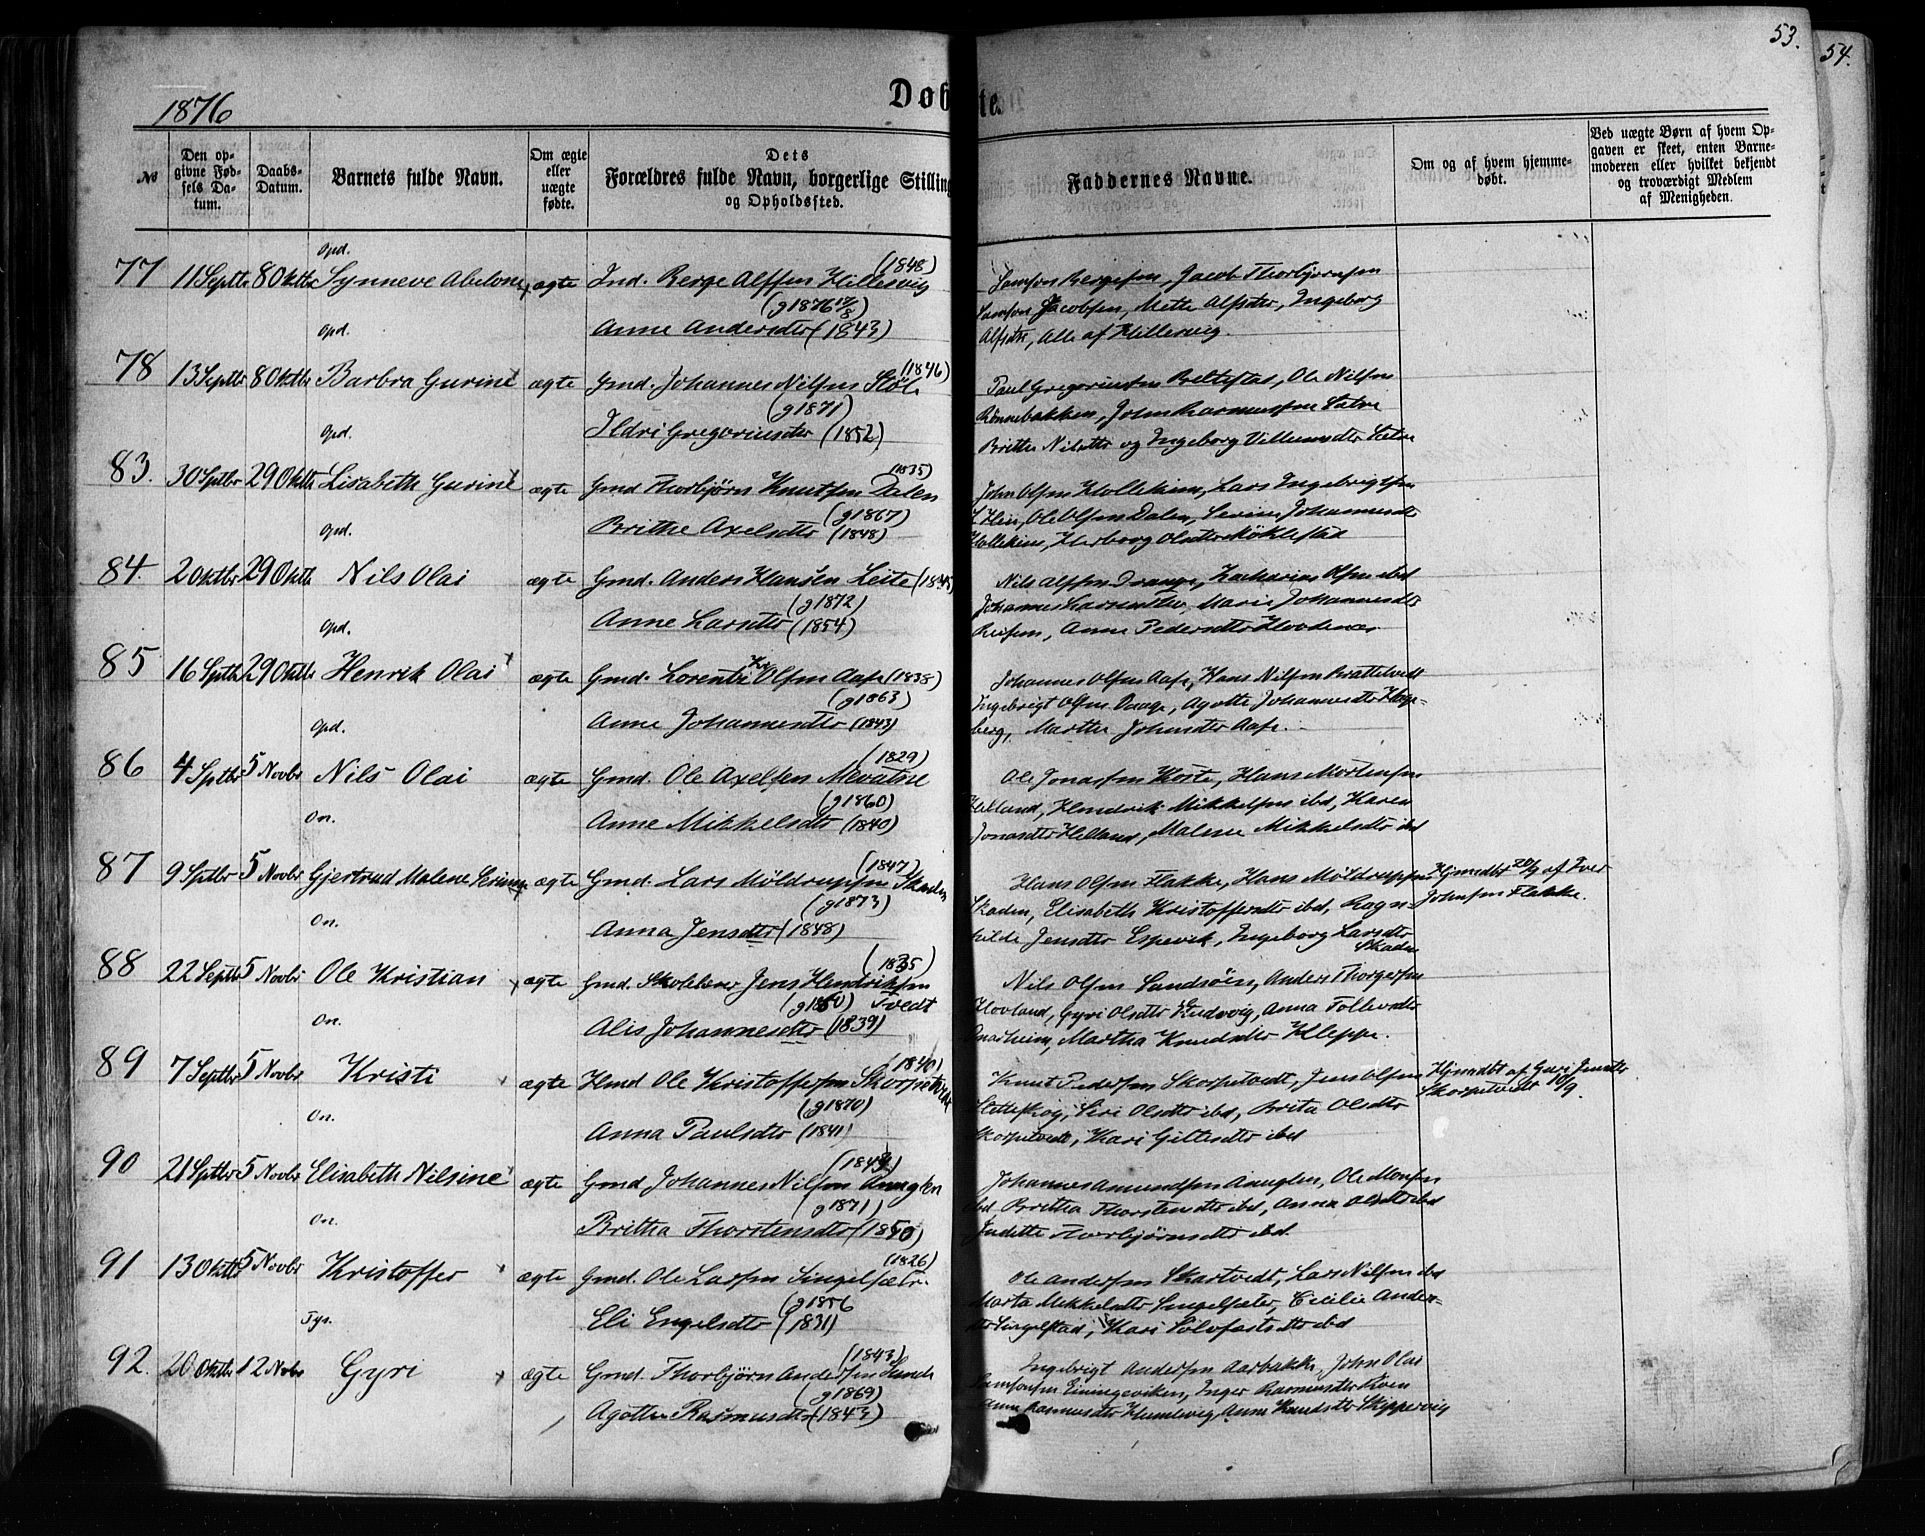 1876
Døbte.
53.
54.
No
Den opgivne Fødsels Datum.
Daabs-Datum.
Barnets fulde Navn.
Om ægte eller uægte fødte.
Dets Forældres fulde Navn, borgerlige Stilling og Opholdssted.
Faddernes Navne.
Om og af hvem hjemmedøbt.
Ved uægte Børn af hvem Opgaven er skeet, enten Barnemoderen eller hvilket bekjendt og troværdigt Medlem af Menigheden.
Opd.
77 11 Septbr 8 Oktbr Synneve Abelone ægte Ind. Berge Alfsen Hillesvig (1848)
(g 1876 17/8)
Opd. Anne Andersdtr (1843)
Samson Bergesen, Jacob Thorbjørnsen
Samson Jacobsen, Mette Alfsdtr, Ingeborg
Alfsdtr, Alle af Hillesvig.
78 13 Septbr 8 Oktbr Barbra Gurine ægte Gmd. Johannes Nilsen Støle (1846)
(g 1871)
Opd. Ildri Gregoriusdtr (1852)
Paul Gregoriussen Beltestad, Ole Nilsen
Rønnebakken, John Rasmussen Sætre
Brithe Nilsdtr og Ingeborg Villumsdtr Sætre
83. 30 Sptbr 29 Oktbr Lisabeth Gurine ægte Gmd Thorbjørn Knutsen Dalen (1835)
(g 1867)
Opd. Brithe Axelsdtr (1848)
John Olsen Hollekim, Lars Ingebrigtsen
Ole Olsen Dalen, Serine Johannesdtr
Hollekim, Herborg Olsdtr Møklestad
84. 2 Oktbr 29 Oktbr Nils Olai ægte Gmd. Anders Hansen Leite
(g 1872)
Opd. Anne Larsdtr (1854)
Nils Alfsen Drange, Zacharias Olsen ibd
Johannes Marie Johannesdtr
Anna Pedersdtr
85 16 Septbr 29 Oktbr Henrik Olai ægte Gmd. Lorentz Olsen Aase (1838)
(g 1863)
Opd. Anne Johannesdtr (1843)
Johannes Olsen Aase, Hans Nilsen Brattetvedt
Ingebrigt Olsen Agathe Johannesdtr Hage-
berg, Marthe Johnsdtr Aase.
86 4 Sptbr 5 Novbr Nils Olai ægte Gmd. Ole Axelsen Mevatne (1829)
(g 1860)
On. Anne Mikkelsdtr (1840)
Ole Jonassen Hans Mortensen
Helland, Hendrik Mikkelsen ibd, Karen
Jonasdtr Helland, Malene Mikkelsdtr ibd
87 9 Sptbr 5 Novbr Gjertrud Malene ægte Gmd. Lars Møldrupsen Skaden (1847)
(g 1873)
On. Anna Jensdtr (1848)
Hans Olsen Flakke, Hans Møldrupsen
Skaden, Elisabeth Kristoffersdtr ibd, Ragn-
hilde Jensdtr Espevik, Ingeborg Larsdtr
Skaden
Hjmdbt 20/9 af Iver
Johnsen Flakke.
88 22 Septbr 5 Novbr Ole Kristian ægte Gmd. Skolelærer Jens Hendriksen (1835)
(g 1860) Tvedt
On. Alis Johannesdtr (1839)
Nils Olsen Sundsøen, Anders Thorgersen
Hovland, Gyri Olsdtr Anna Tollevsdtr
Martha Knudsdtr Kleppe.
89 7 Septbr 5 Novbr Kristi ægte Hmd Ole Kristoffersen Skorpetvedt (1840)
(g 1870)
On. Anna Paulsdtr (1841)
Knut Pedersen Skorpetvedt, Jens Olsen
Sletteskog, Siri Olsdtr ibd, Brita Olsdtr
Skorpetvedt, Kari Gittlesdtr ibd
Hjmdbt af Guri Jensdtr
Skorpetvedt 10/9.
90 21 Sptbr 5 Novbr Elisabeth Nilsine ægte Gmd Johannes Nilsen
(g 1871)
On. Britha Thorstensdtr (1850)
Johannes Amundsen Ole Monsen
ibd, Britha Thorstensdtr ibd, Anna Olsdtr ibd
Judithe Thorbjørnsdtr ibd.
91 13 Oktbr 5 Novbr Kristoffer ægte Gmd. Ole Larsen Singelsæter. (1826)
(g 1856
Tys. Eli Engelsdtr (1831)
Ole Andersen Skartvedt, Lars Nilsen ibd
Marta Mikkelsdtr Singelsæter, Cecilie Anders-
dtr Singelstad, Kari Solvfastsdtr ibd
92. 20 Oktbr 12 Nobr Gyri ægte Gmd. Thorbjørn Andersen Sunde (1843)
(g 1869)
Agathe Rasmusdtr (1843)
Ingebrigt Andersen Aarbakke, John Olai
Samsonsen Einingeviken, Inger Rasmusdtr
Anne Rasmusdtr Humlevig, Anne Knudsdtr Skippervig